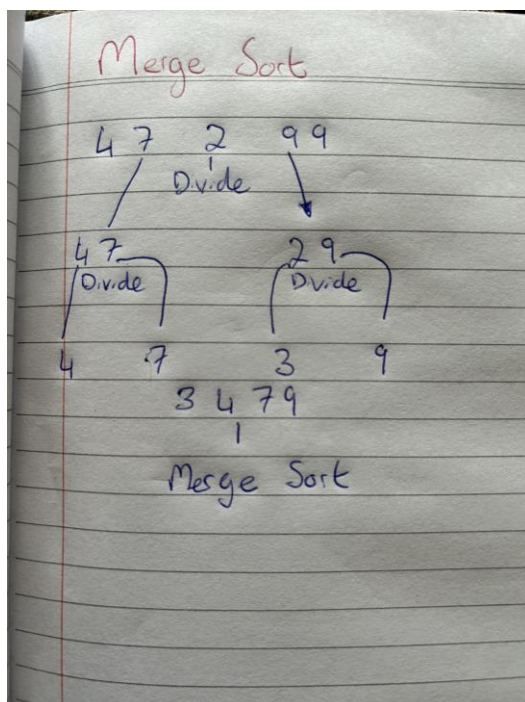 Merge Sort
4 7 2 9 9
Divide
4 7 2 9
Divide Divide
4 7 3 9
3 4 7 9
Merge Sort